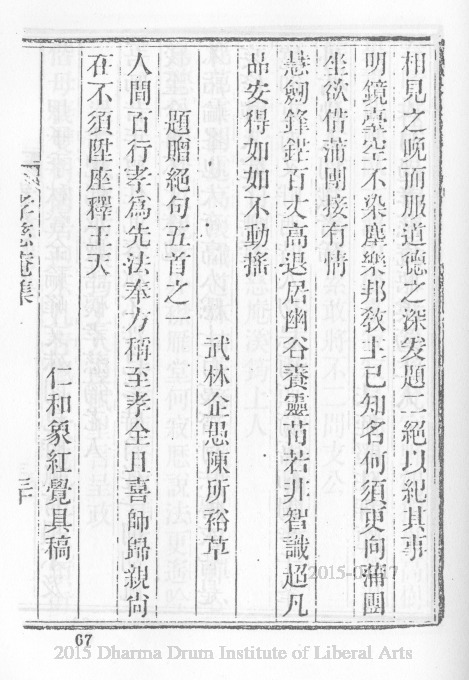 相見之晚而服道德之深爰題一絕以紀其事
明鏡臺空不染塵樂邦敎主已知名何須更向蒲團
坐欲借蒲團接有情
慧劒鋒鋩百丈高退居幽谷養靈苗若非智識超凡
品安得如如不動搖
武林企愚陳所裕草
題贈絕句五首之一
人間百行孝爲先法奉方稱至孝全且喜師歸親尚
在不須陞座釋王天
仁和象紅覺具稿
孝慈菴集
三十
67
2015 Dharma Drum Institute of Liberal Arts